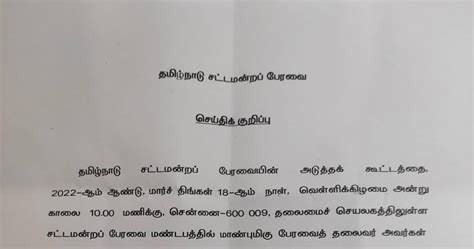 தமிழ்நாடு சட்டமன்றப் பேரவை
செய்திக் குறிப்பு
தமிழ்நாடு சட்டமன்றப் பேரவையின் அடுத்தக் கூட்டத்தை,
2022-ஆம் ஆண்டு, மார்ச் திங்கள் 18-ஆம் நாள், வெள்ளிக்கிழமை அன்று
காலை 10.00 மணிக்கு, சென்னை-600 009, தலைமைச் செயலகத்திலுள்ள
சட்டமன்றப் பேரவை மண்டபத்தில் மாண்புமிகு பேரவைத் தலைவர் அவர்கள்